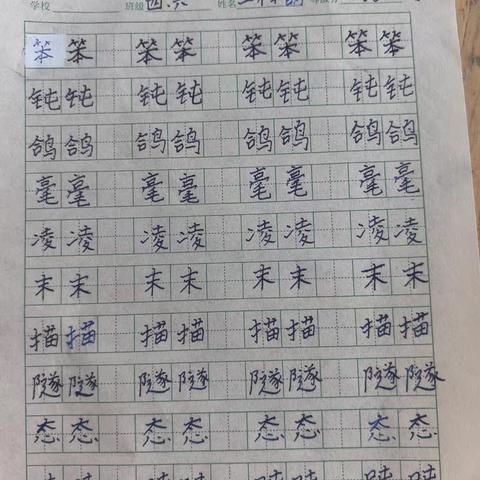 学校 班级 四.六 姓名
笨笨 笨笨 笨笨 笨笨
钝钝 钝钝 钝钝 钝钝
鸽鸽 鸽鸽 鸽鸽 鸽鸽
毫毫 毫毫 毫毫 毫毫
凌凌 凌凌 凌凌 凌凌
末末 末末 末末 末末
描描 描描 描描 描描
隧隧 隧隧 隧隧 隧隧
态态 态态 态态 态态